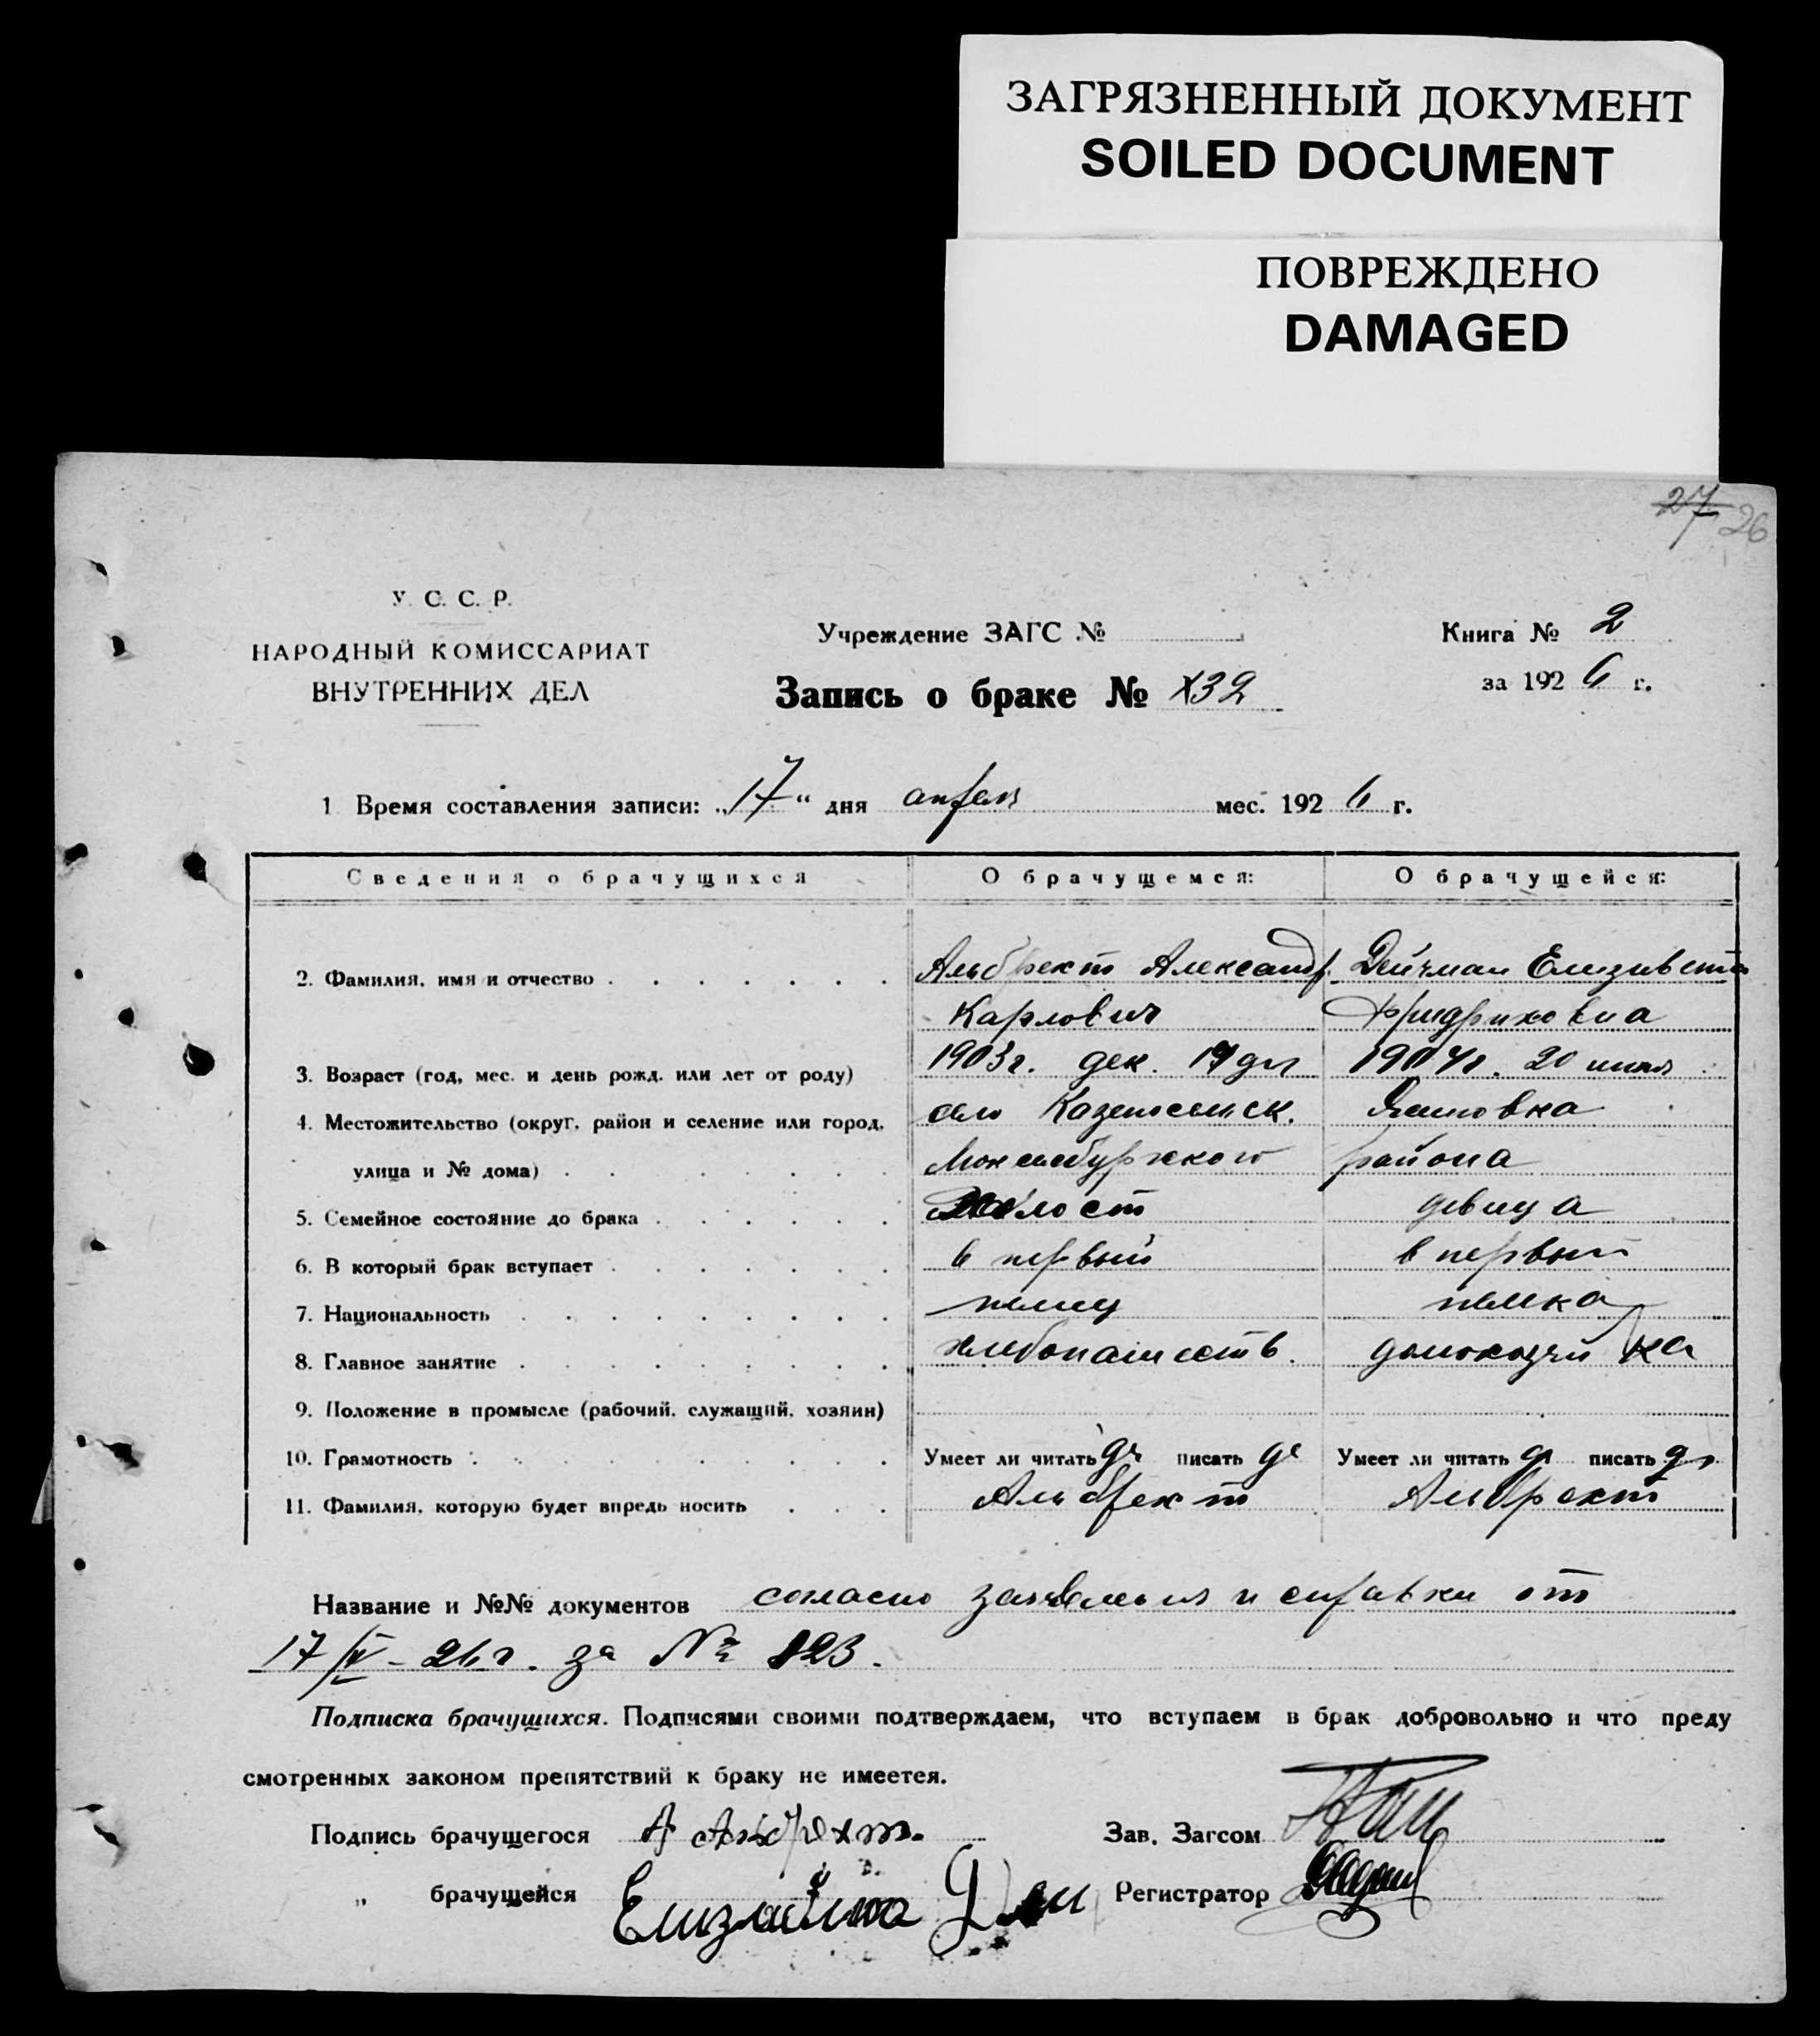 ЗАГРЯЗНЕННЫЙ ДОКУМЕНТ
SOILED DOCUMENT
ПОВРЕЖДЕНО
DAMAGED
27 26
У. С. С. Р.
НАРОДНЫЙ КОМИССАРИАТ
ВНУТРЕННИХ ДЕЛ
Учреждение ЗАГС №
Запись о браке № 32
Книга № 2
за 1926 г.
1 Время составления записи: „17“ дня апреля мес. 1926 г.
Сведения о брачущихся О брачущемся: О брачущейся:
2. Фамилия, имя и отчество Альбрехт Александр Дейчман Елизавета
Карлович Фридриховна
3. Возраст (год, мес. и день рожд. или лет от роду) 1903г. дек. 17 дня 1904г. 20
4. Местожительство (округ, район и селение или город, село
улица и № дома) района
5. Семейное состояние до брака холост девица
6. В который брак вступает в первый в первый
7. Национальность немец немка
8. Главное занятие хлебопашеств. домохозяйка
9. Положение в промысле (рабочий, служащий, хозяин)
10. Грамотность Умеет ли читать да писать да Умеет ли читать да писать да
11. Фамилия, которую будет впредь носить Альбрехт Альбрехт
Название и №№ документов согласно заявления и справки от
17/IV - 26 г. за № 823.
Подписка брачущихся. Подписями своими подтверждаем, что вступаем в брак добровольно и что преду
смотренных законом препятствий к браку не имеется.
Подпись брачущегося А Альбрехт. Зав. Загсом
„ брачущейся Регистратор